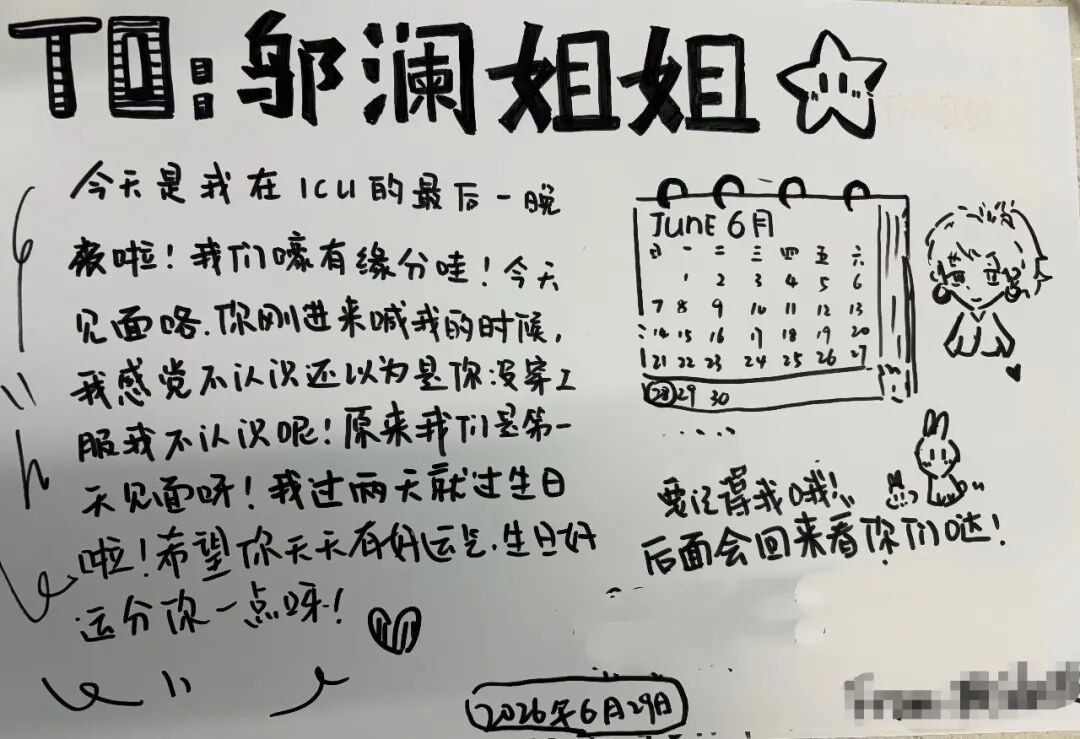 TO:邬澜姐姐
今天是我在ICU的最后一晚
啦!我们嚎有缘分哇!今天
见面咯.你刚进来喊我的时候,
我感觉不认识还以为是你没穿工
服我不认识呢!原来我们是第一
天见面呀!我过两天就过生日
啦!希望你天天有好运气.生日好
运分你一点呀!
JUNE 6月
日 一 二 三 四 五 六
1 2 3 4 5 6
7 8 9 10 11 12 13
14 15 16 17 18 19 20
21 22 23 24 25 26 27
28 29 30
要记得我哦!
后面会回来看你们哒!
2026年6月29日
From: